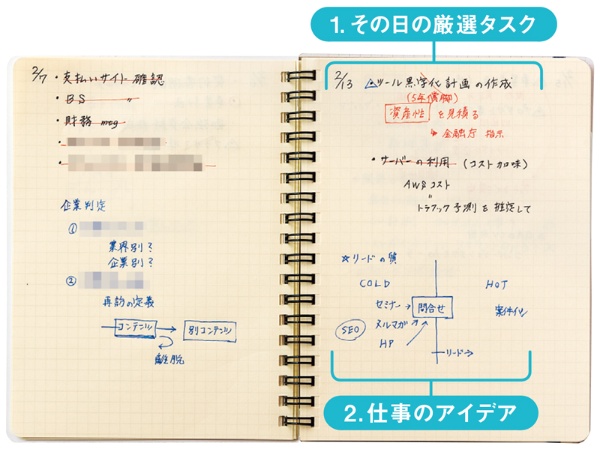 1. その日の厳選タスク
2/7 ・支払いサイト確認
・BS 〃
・財務 mtg
企業判定
①
業界別?
企業別?
②
再訪の定義
コンテンツ → 別コンテンツ
離脱
2/13 △ツール黒字化計画の作成
(5年償却)
資産性 を見積る
→ 金融庁 指示
・サーバーの利用 (コスト加味)
AWSコスト
〃
トラフィック予測を推定して
☆リードの質
COLD
HOT
セミナー
問合せ
案件化
SEO
メルマガ
HP
リード→
2. 仕事のアイデア